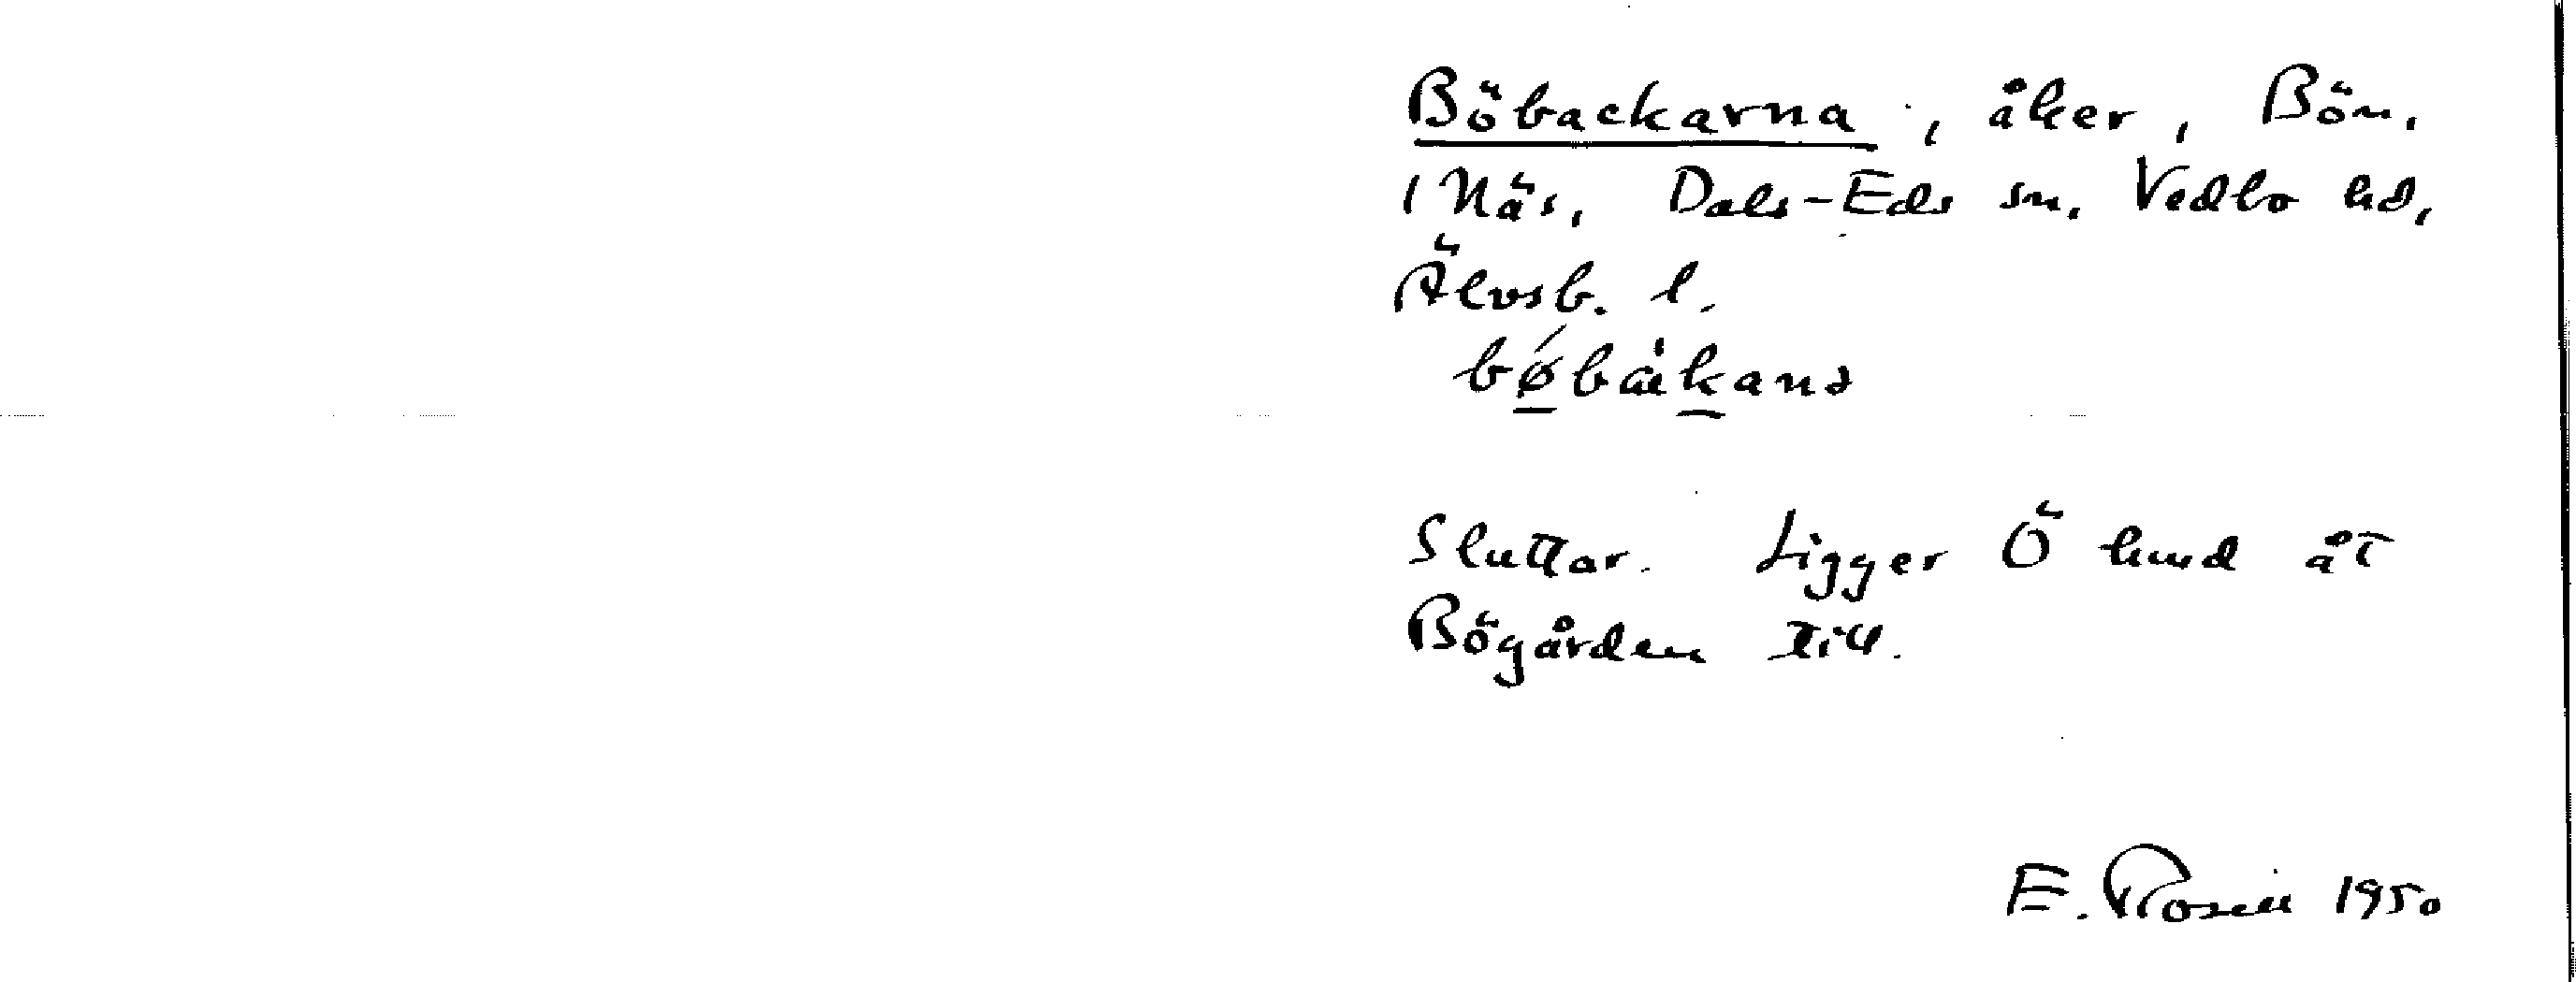 Böbackarna, åker, Bön,
1 Näs, Dals-Eds sn, Vedbo hd,
Älvsb. l.
Sluttar. Ligger Ö hund åt
Bögården till.
E. Rosén 1950